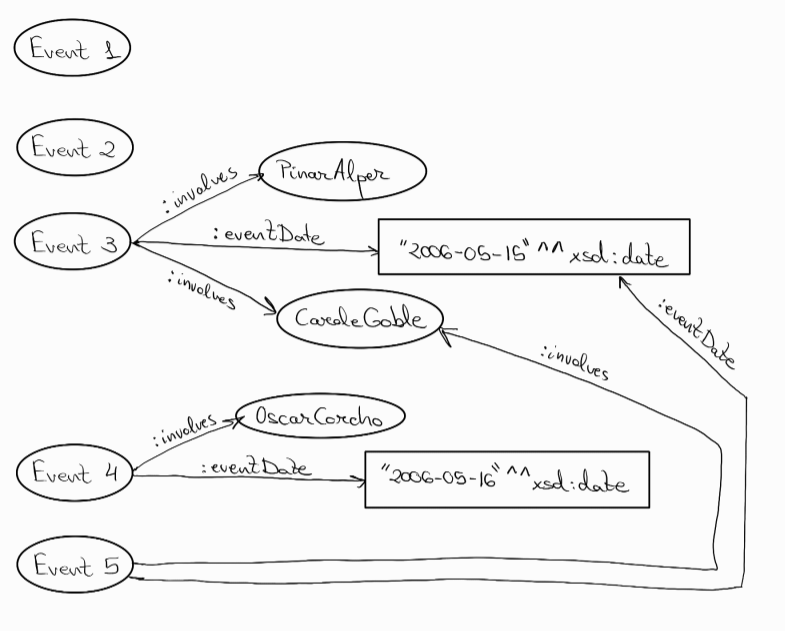 Event 1
Event 2
:involves
PinarAlper
Event 3
:eventDate
"2006-05-15"^^xsd:date
:involves
CaroleGoble
:eventDate
:involves
:involves
OscarCorcho
Event 4
:eventDate
"2006-05-16"^^xsd:date
Event 5